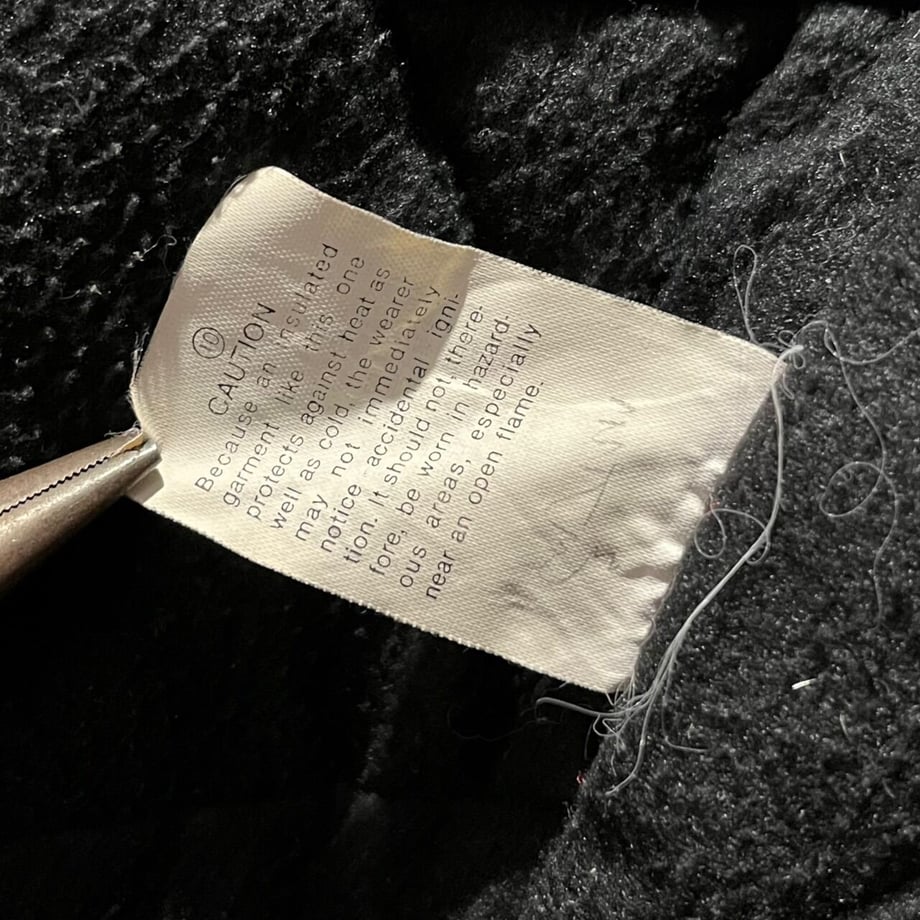 10
CAUTION
Because an insulated
garment like this one
protects against heat as
well as cold, the wearer
may not immediately
notice accidental igni-
tion. It should not, there-
fore, be worn in hazard-
ous areas, especially
near an open flame.